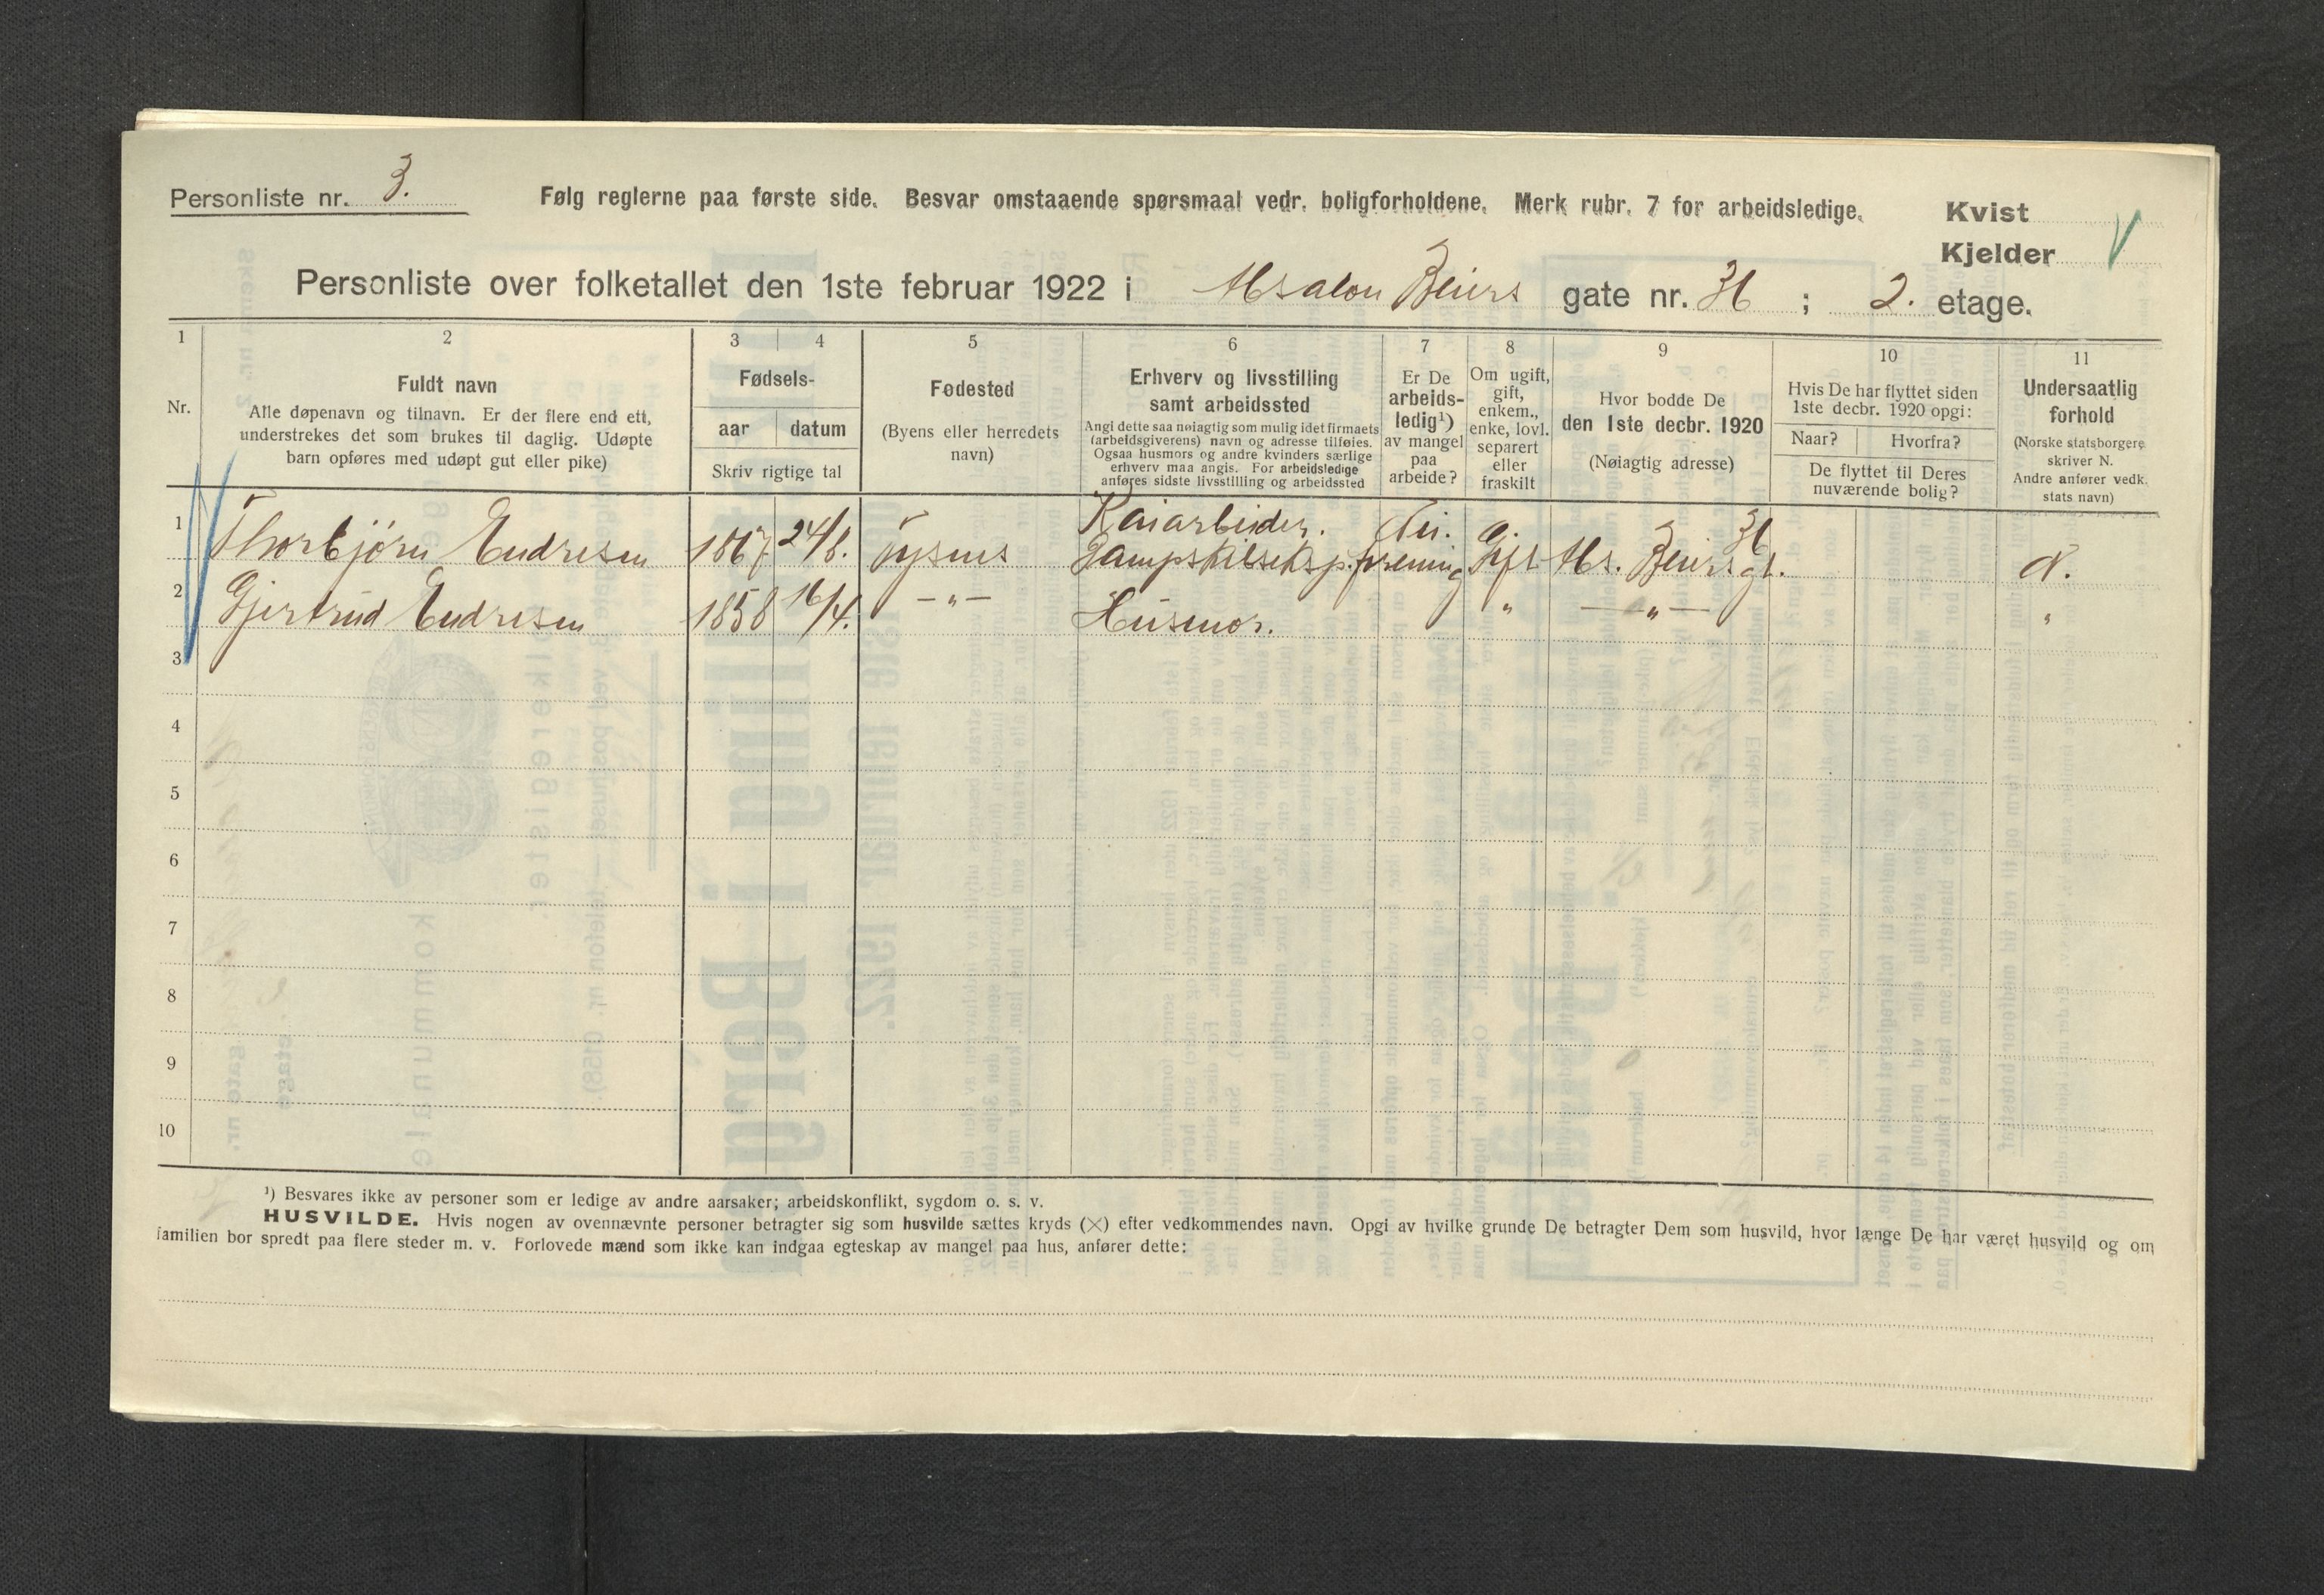 Personliste nr. 3.
Følg reglerne paa første side. Besvar omstaaende spørsmaal vedr. boligforholdene. Merk rubr. 7 for arbeidsledige.
Kvist
Kjelder
Personliste over folketallet den 1ste februar 1922 i Absalon Beiers gate nr. 36 ; 2. etage.
1 2 3 4 5 6 7 8 9 10 11
Nr.
Fuldt navn
Alle døpenavn og tilnavn. Er der flere end ett,
understrekes det som brukes til daglig. Udøpte
barn opføres med udøpt gut eller pike)
Fødsels-
aar datum
Skriv rigtige tal
Fødested
(Byens eller herredets
navn)
Erhverv og livsstilling
samt arbeidssted
Angi dette saa nøiagtig som mulig idet firmaets
(arbeidsgiverens) navn og adresse tilføies.
Ogsaa husmors og andre kvinders særlige
erhverv maa angis. For arbeidsledige
anføres sidste livsstilling og arbeidssted
Er De
arbeids-
ledig¹)
av mangel
paa
arbeide?
Om ugift,
gift,
enkem.,
enke, lovl.
separert
eller
fraskilt
Hvor bodde De
den 1ste decbr. 1920
(Nøiagtig adresse)
Hvis De har flyttet siden
1ste decbr. 1920 opgi:
Naar? Hvorfra?
De flyttet til Deres
nuværende bolig?
Undersaatlig
forhold
(Norske statsborgere
skriver N.
Andre anfører vedk.
stats navn)
Kaiarbeider. Nei. 36
1 Thorbjørn Endresen 1867 24/8. Tysnes Dampskibseksp.forening Gift Abs. Beiers gt. N.
2 Gjertrud Endresen 1858 16/4. —"— Husmor. " —"— "
3
4
5
6
7
8
9
10
¹) Besvares ikke av personer som er ledige av andre aarsaker; arbeidskonflikt, sygdom o. s. v.
HUSVILDE. Hvis nogen av ovennævnte personer betragter sig som husvilde sættes kryds (×) efter vedkommendes navn. Opgi av hvilke grunde De betragter Dem som husvild, hvor længe De har været husvild og om
familien bor spredt paa flere steder m. v. Forlovede mænd som ikke kan indgaa egteskap av mangel paa hus, anfører dette: